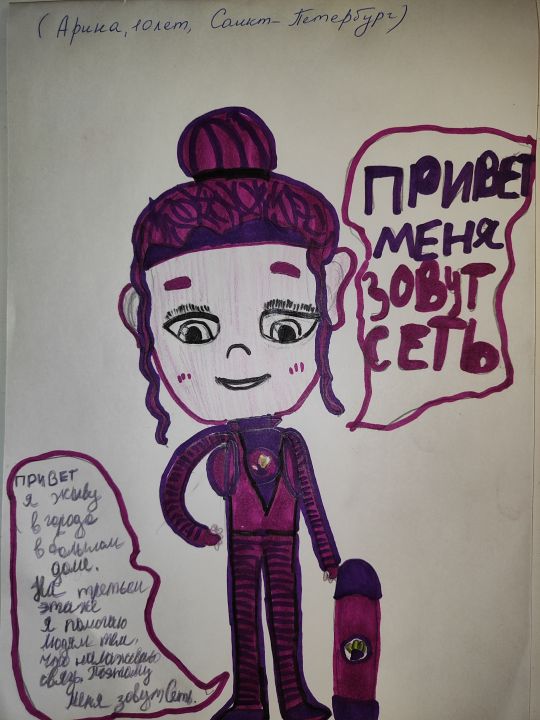 (Арина, 10 лет, Санкт-Петербург)
ПРИВЕТ
МЕНЯ
ЗОВУТ
СЕТЬ
ПРИВЕТ
я живу
в городе
в большом
доме.
На третьем
этаже
я помогаю
людям тем,
что налаживаю
связь. Поэтому
меня зовут Сеть.